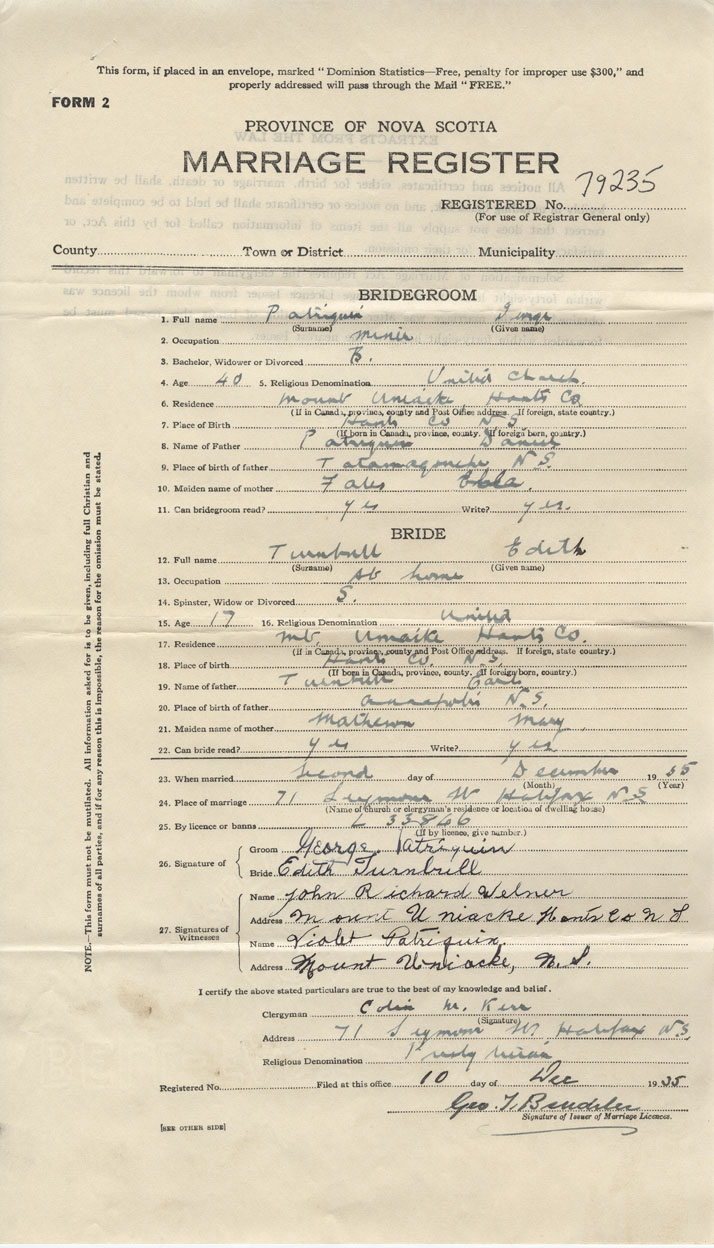 This form, if placed in an envelope, marked "Dominion Statistics—Free, penalty for improper use $300," and
properly addressed will pass through the Mail "FREE."
FORM 2
PROVINCE OF NOVA SCOTIA
MARRIAGE REGISTER
79235
REGISTERED No.
(For use of Registrar General only)
County Town or District Municipality
BRIDEGROOM
1. Full name Patriquin
(Surname) (Given name)
2. Occupation miner
3. Bachelor, Widower or Divorced B.
4. Age 40 5. Religious Denomination United Church.
6. Residence Mount Uniacke, Hants Co
(If in Canada, province, county and Post Office address. If foreign, state country.)
7. Place of Birth Hants Co N S
(If born in Canada, province, county. If foreign born, country.)
8. Name of Father Patriquin Daniel
9. Place of birth of father Tatamagouche N.S.
10. Maiden name of mother Fales
11. Can bridegroom read? yes Write? yes.
BRIDE
12. Full name Turnbull Edith
(Surname) (Given name)
13. Occupation at home
14. Spinster, Widow or Divorced S.
15. Age 17 16. Religious Denomination United
17. Residence Mt. Uniacke Hants Co.
(If in Canada, province, county and Post Office address. If foreign, state country.)
18. Place of birth Hants Co. N.S.
(If born in Canada, province, county. If foreign born, country.)
19. Name of father Turnbull
20. Place of birth of father Annapolis N.S.
21. Maiden name of mother Mathewn Mary
22. Can bride read? yes Write? yes
23. When married Second day of December 1935
(Month) (Year)
24. Place of marriage 71 Seymour St Halifax N S
(Name of church or clergyman's residence or location of dwelling house)
25. By licence or banns L 33866
(If by licence, give number.)
26. Signature of
Groom George Patriquin
Bride Edith Turnbull
27. Signatures of
Witnesses
Name John Richard Welner
Address Mount Uniacke Hants Co N S
Name Violet Patriquin.
Address Mount Uniacke, N.S.
I certify the above stated particulars are true to the best of my knowledge and belief.
Clergyman Colin M. Kerr
(Signature)
Address 71 Seymour St Halifax N.S.
Religious Denomination Presbyterian
Registered No. Filed at this office 10 day of Dec 1935
Geo. T.
Signature of Issuer of Marriage Licences.
[SEE OTHER SIDE]
NOTE.—This form must not be mutilated. All information asked for is to be given, including full Christian and
surnames of all parties, and if for any reason this is impossible, the reason for the omission must be stated.